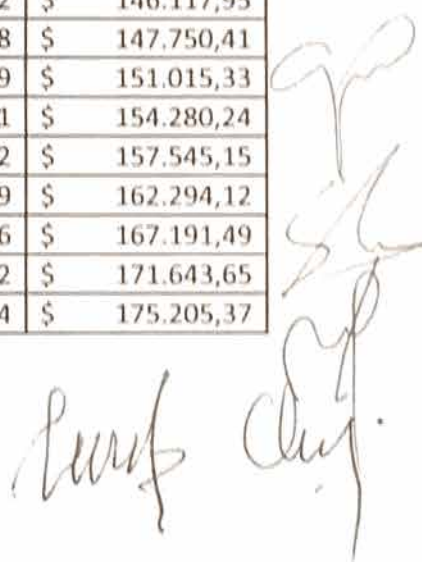 2 $ 146.117,95
8 $ 147.750,41
9 $ 151.015,33
1 $ 154.280,24
2 $ 157.545,15
9 $ 162.294,12
6 $ 167.191,49
2 $ 171.643,65
4 $ 175.205,37